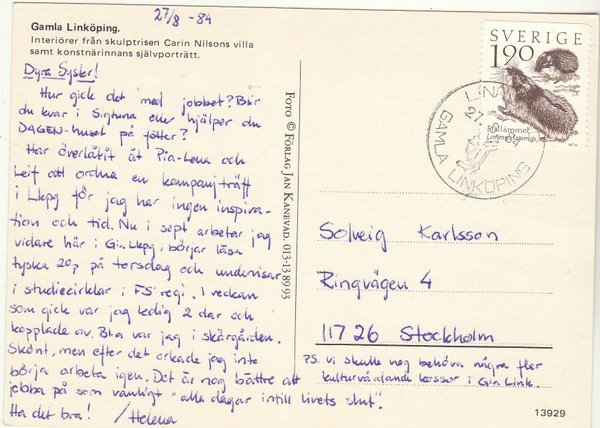 27/8 - 84
Gamla Linköping.
Interiörer från skulptrisen Carin Nilsons villa
samt konstnärinnans självporträtt.
Dyra Syster!
Hur gick det med jobbet? Blir
du kvar i Sigtuna eller hjälper du
DAGEN-huset på fötter?
Har överlåtit åt Pia-Lena och
Leif att ordna en kompanjträff
i Lkpg för jag har ingen inspira-
tion och tid. Nu i sept arbetar jag
vidare här i Gin Lkpg, börjar läsa
tyska 20p på torsdag och undervisar
i studiecirklar i FS' regi. I veckan
som gick var jag ledig 2 dar och
kopplade av. Bla var jag i skärgården.
Skönt, men efter det orkade jag inte
börja arbeta igen. Det är nog bättre att
jobba på som vanligt "alla dagar intill livets slut".
Ha det bra! /Helena
FOTO © FÖRLAG JAN KANEVAD, 013-13 89 93
SVERIGE
190
Fjällämmel
Lemmus lemmus
27
GAMLA LINKÖPING
Solveig Karlsson
Ringvägen 4
117 26 Stockholm
PS. vi skulle nog behöva några fler
kulturvårdande kossor i Gin Link.
13929